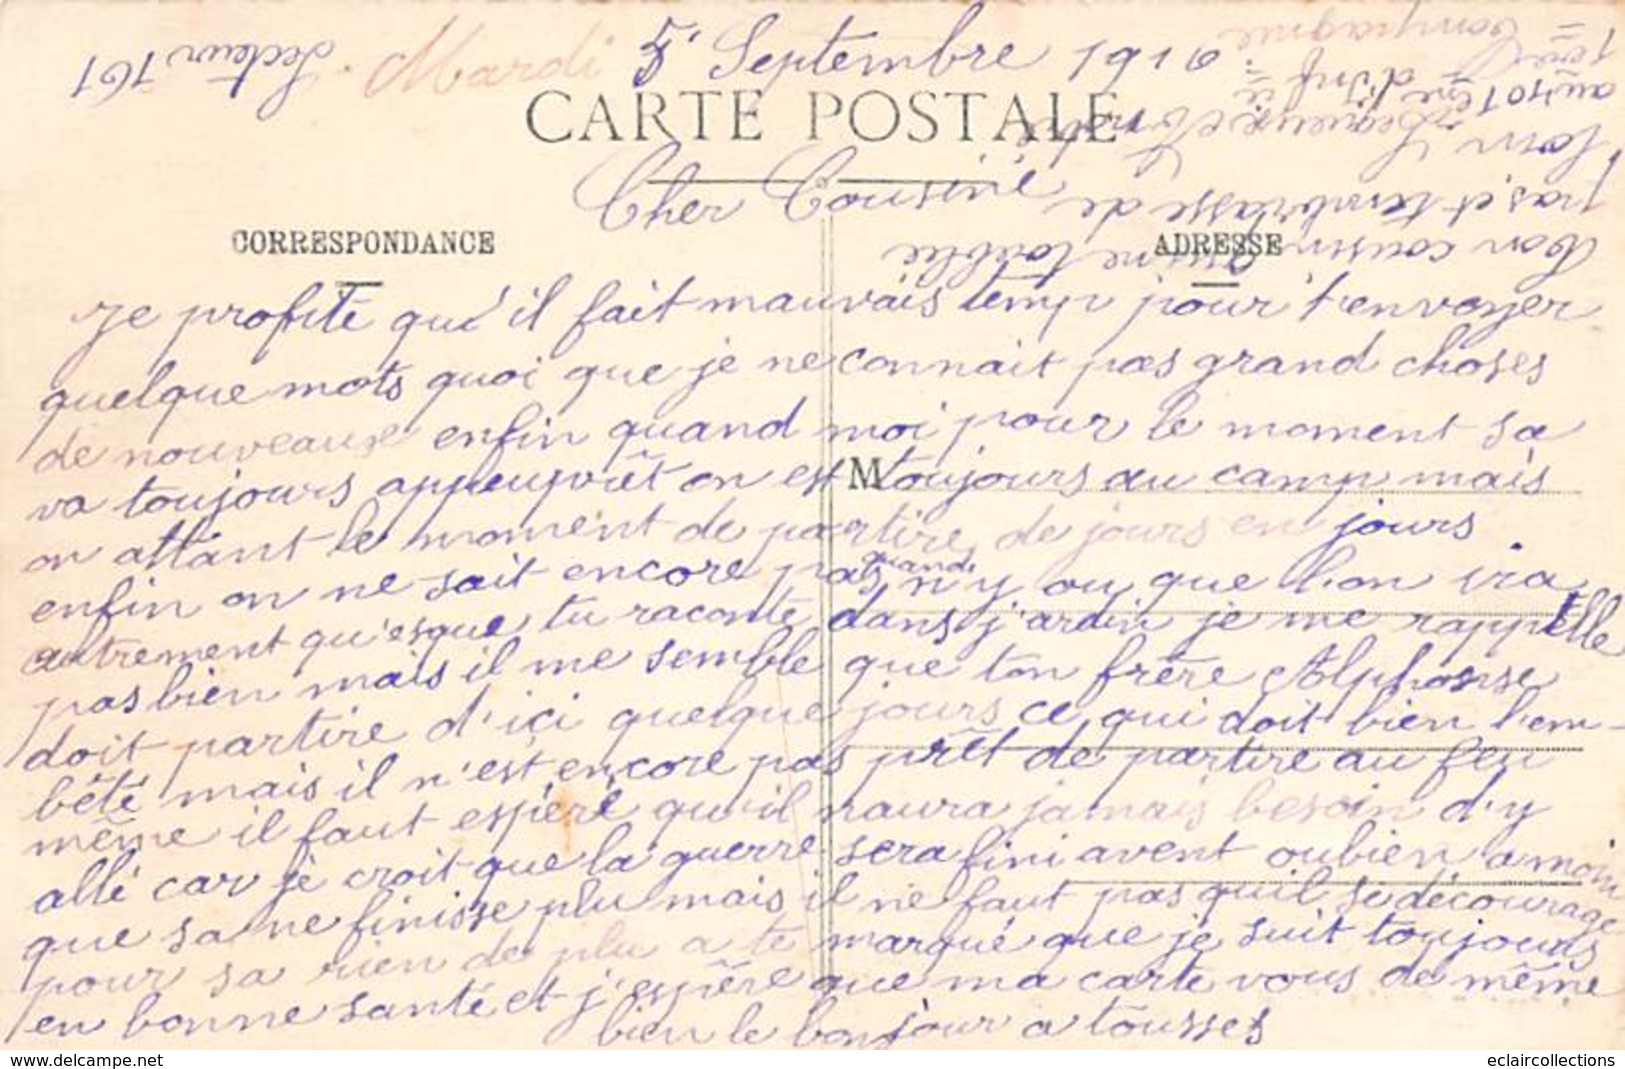 Mardi 5 Septembre 1916
CARTE POSTALE
Cher Cousine
CORRESPONDANCE
ADRESSE
je profite qu'il fait mauvais temp pour t'envoyer
quelque mots quoi que je ne connait pas grand choses
de nouveaux enfin quand moi pour le moment sa
va toujours appeuprêt on est M toujours au camp mais
on attant le moment de partire de jours en jours
enfin on ne sait encore pas quand n'y ou que l'on ira
autrement qu'esque tu raconte dans j'ardin je me rappelle
pas bien mais il me semble que ton frère Alphonse
doit partire d'ici quelque jours ce qui doit bien l'em-
bêté mais il n'est encore pas prêt de partire au feu
même il faut espéré qu'il naura jamais besoin d'y
allé car je croit que la guerre sera fini avent oubien a moin
que sa ne finisse plu mais il ne faut pas quil se décourage
pour sa rien de plu a te marqué que je suit toujours
en bonne santé et j'espère que ma carte vous de même
bien le bonjour a tousses
ton cousin qui ne toublie
pas et tembrasse de
loin
au 401 ème d'Inf ie
1 ère Compagnie
Secteur 161
www.delcampe.net
eclaircollections